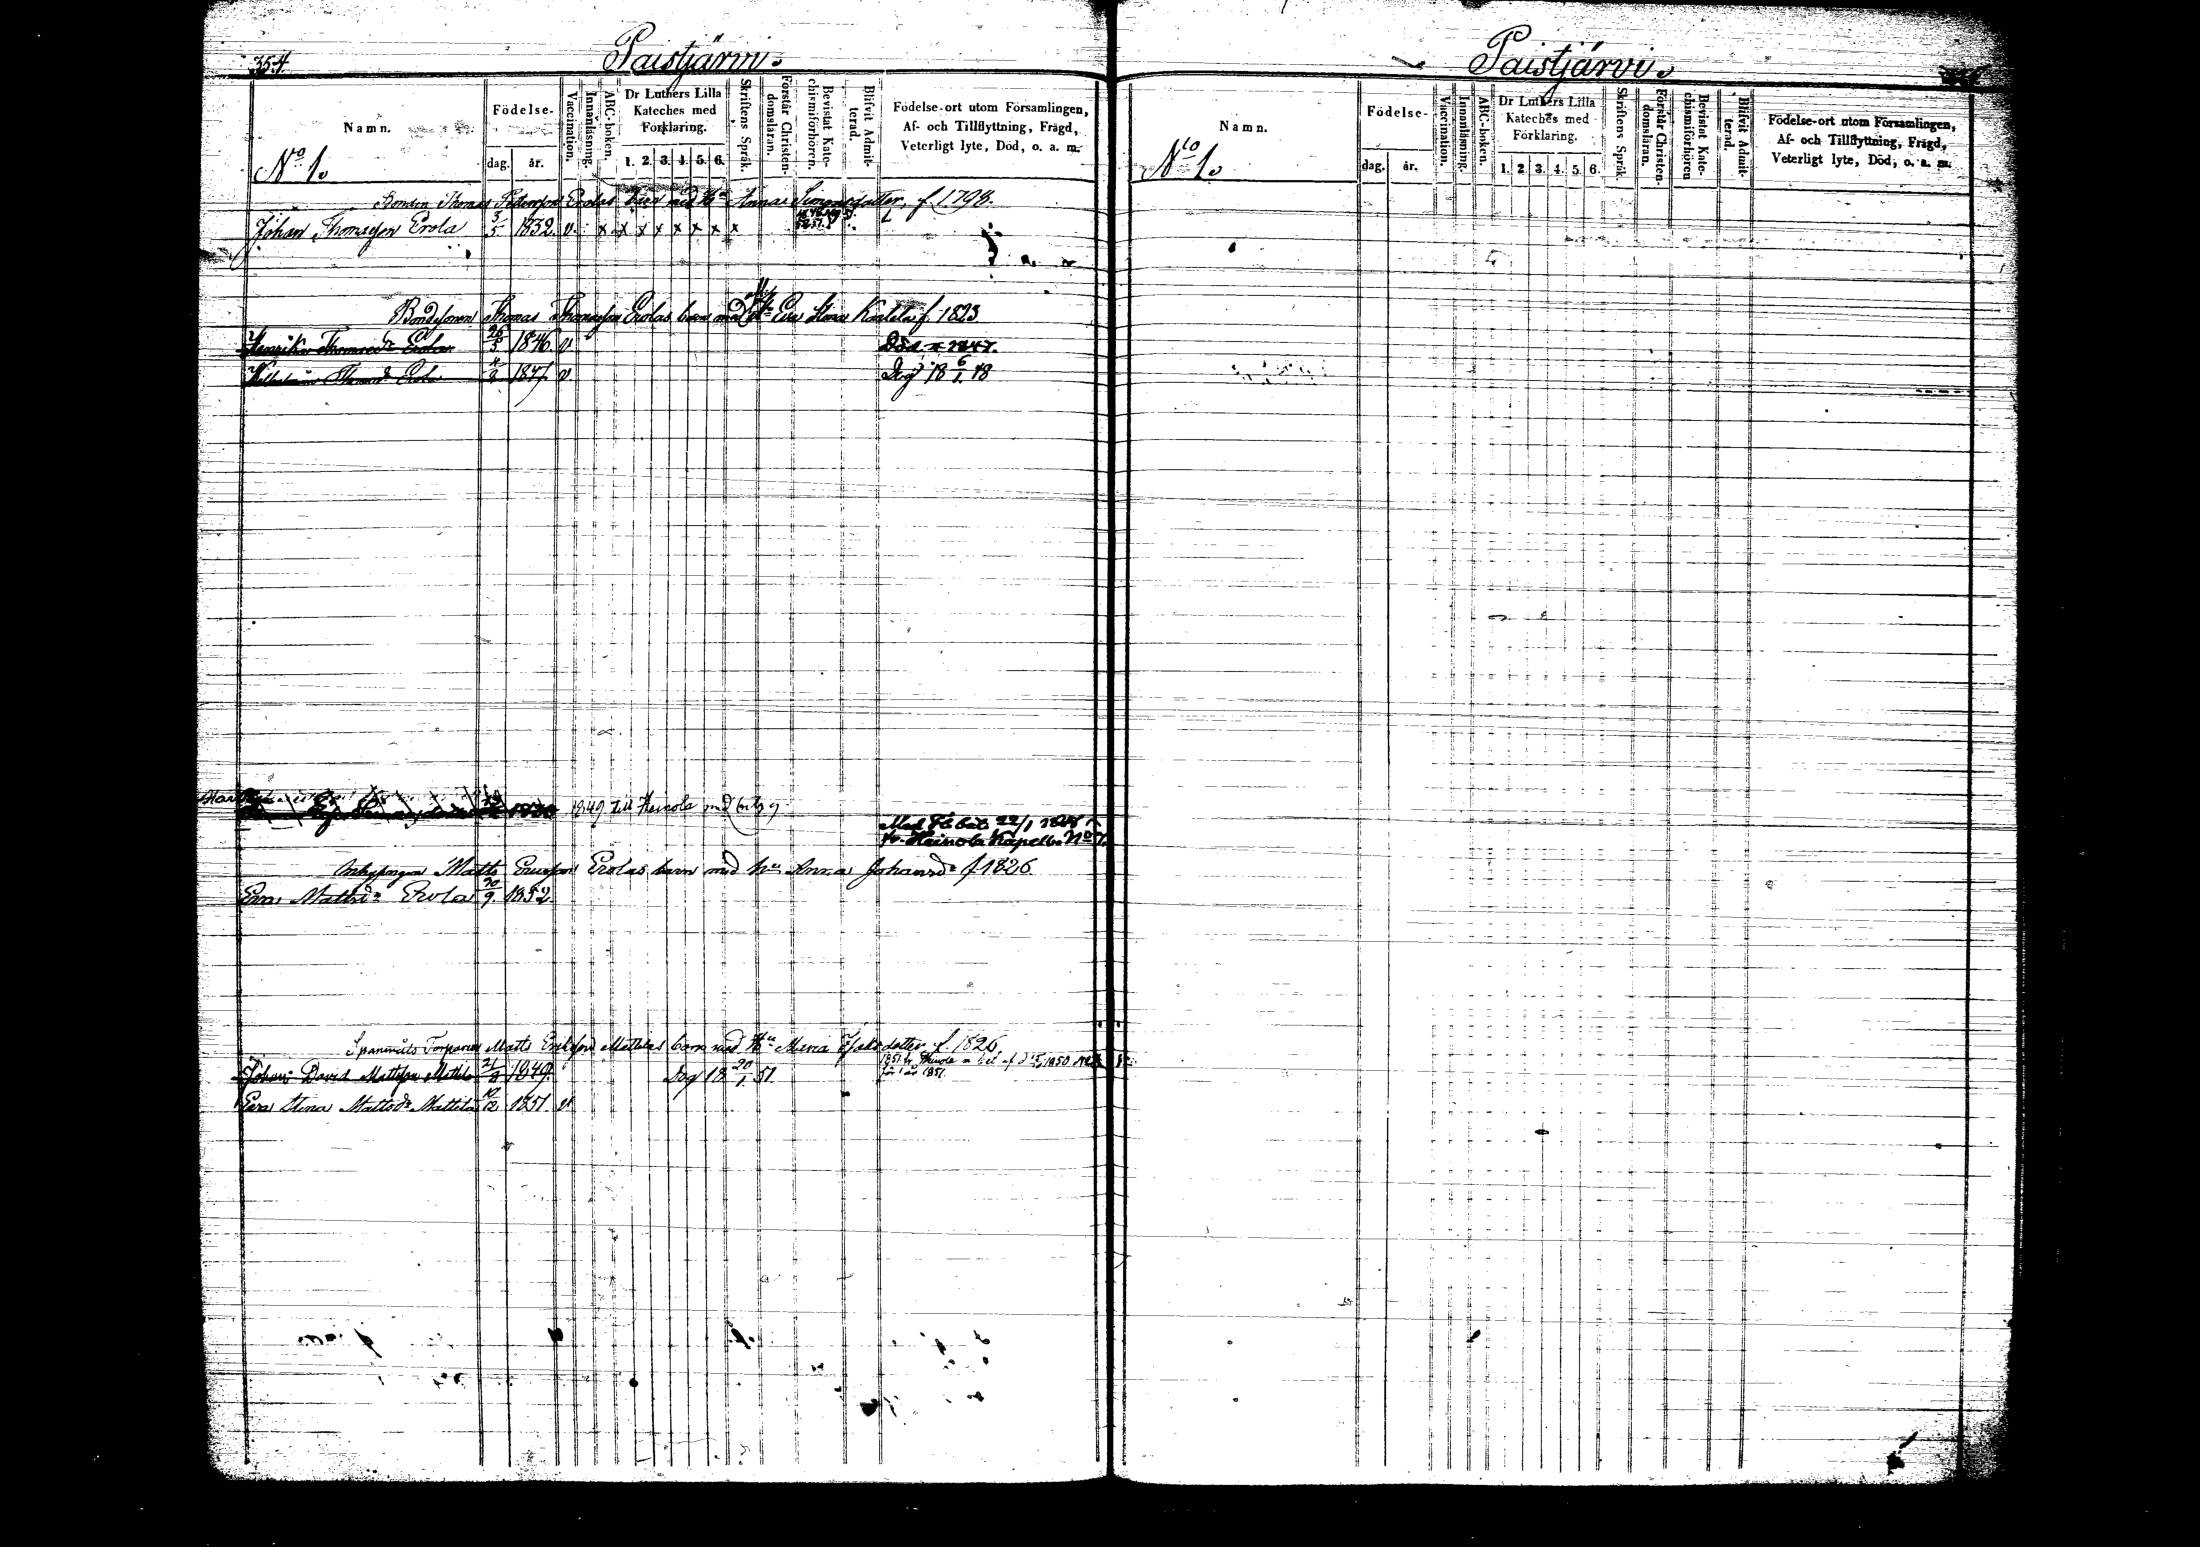 354.
Paistjärvi.
Namn.
Födelse-
dag. år.
Vaccination.
Innanläsning.
ABC-boken.
Dr Luthers Lilla
Kateches med
Förklaring.
1. 2. 3. 4. 5. 6.
Skriftens Språk.
Förstår Christen-
domsläran.
Bevistat Kate-
chismiförhören.
Blifvit Admit-
terad.
Födelse-ort utom Församlingen,
Af- och Tillflyttning, Frägd,
Veterligt lyte, Död, o. a. m.
No 1.
Bonden Thomas Erolas barn med Hu Anna Simonsdotter, f. 1798.
Johan Thomasson Erola 3/5 1832. v. x x x x x x x x
Bondesonen Thomas Thomasson Erolas barn med Hu Eva Stina f. 1823
Henrika Thomasdr Erola 26/5 1846. v Död 1847.
Thomasdr Erola 1847. v Dog 18 6/1 48
1830 1849 till Heinola med betyg
Med bet. 22/1 1848
fr. Heinola Kapell No 7.
Matts Ericsson Erolas barn med hu Anna Johansdr f. 1826
Eva Mattsdr Erola 20/9 1852.
Torparen Matts Ericsson Mattilas barn med Hu Maria dotter f. 1826
Johan David Mattsson Mattila 21/8 1849. Dog 18 20/1 51.
1851 fr. Heinola m. bet. af 1850
1851
Eva Stina Mattsdr Mattila 1851. v
Paistjärvi.
Namn.
Födelse-
dag. år.
Vaccination.
Innanläsning.
ABC-boken.
Dr Luthers Lilla
Kateches med
Förklaring.
1. 2. 3. 4. 5. 6.
Skriftens Språk.
Förstår Christen-
domsläran.
Bevistat Kate-
chismiförhören
Blifvit Admit-
terad.
Födelse-ort utom Församlingen,
Af- och Tillflyttning, Frägd,
Veterligt lyte, Död, o. a. m.
No 1.